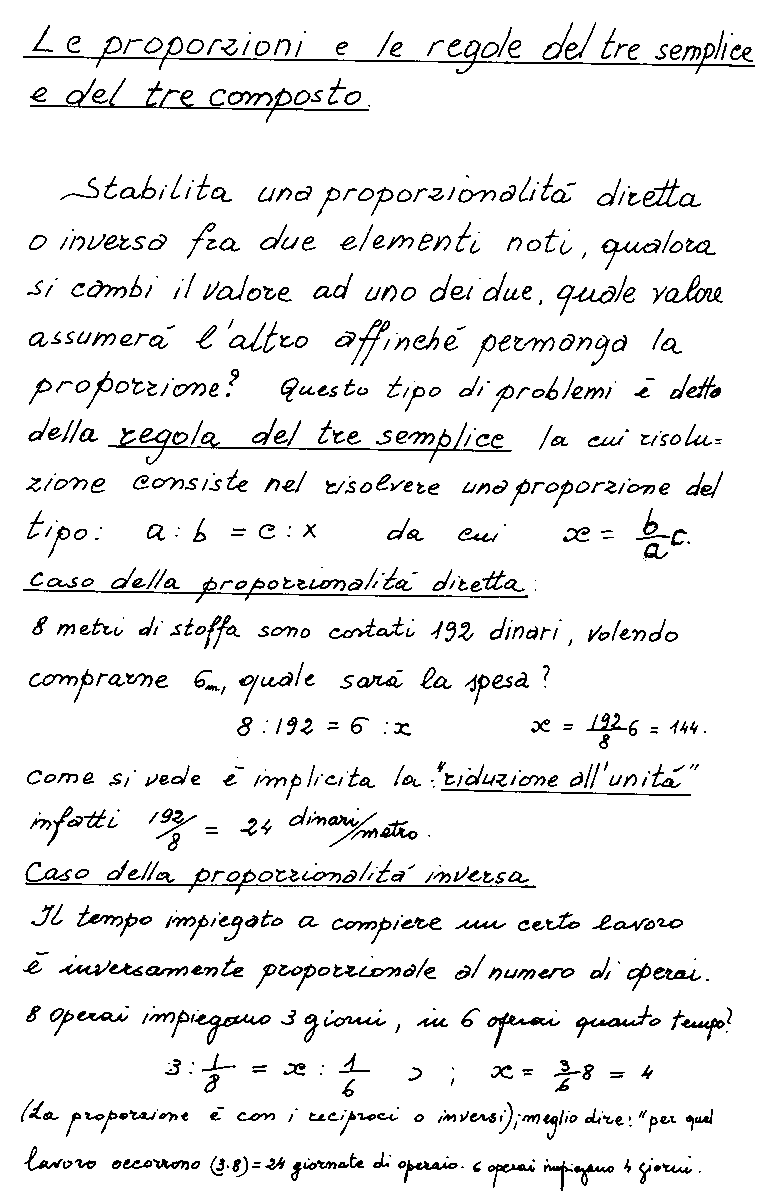 Le proporzioni e le regole del tre semplice
e del tre composto.
Stabilita una proporzionalitá diretta
o inversa fra due elementi noti, qualora
si cambi il valore ad uno dei due, quale valore
assumerá l'altro affinché permanga la
proporzione? Questo tipo di problemi é detto
della regola del tre semplice la cui risolu=
zione consiste nel risolvere una proporzione del
tipo: a : b = c : x da cui x = b/a c.
Caso della proporzionalitá diretta.
8 metri di stoffa sono costati 192 dinari, volendo
comprarne 6m, quale sará la spesa?
8 : 192 = 6 : x x = 192/8 6 = 144.
Come si vede é implicita la "riduzione all'unitá"
infatti 192/8 = 24 dinari/metro.
Caso della proporzionalitá inversa.
Il tempo impiegato a compiere un certo lavoro
é inversamente proporzionale al numero di operai.
8 operai impiegano 3 giorni, in 6 operai quanto tempo?
3 : 1/8 = x : 1/6 ; x = 3/6 8 = 4
(La proporzione é con i reciproci o inversi); meglio dire: "per quel
lavoro occorrono (3·8) = 24 giornate di operaio. 6 operai impiegano 4 giorni.